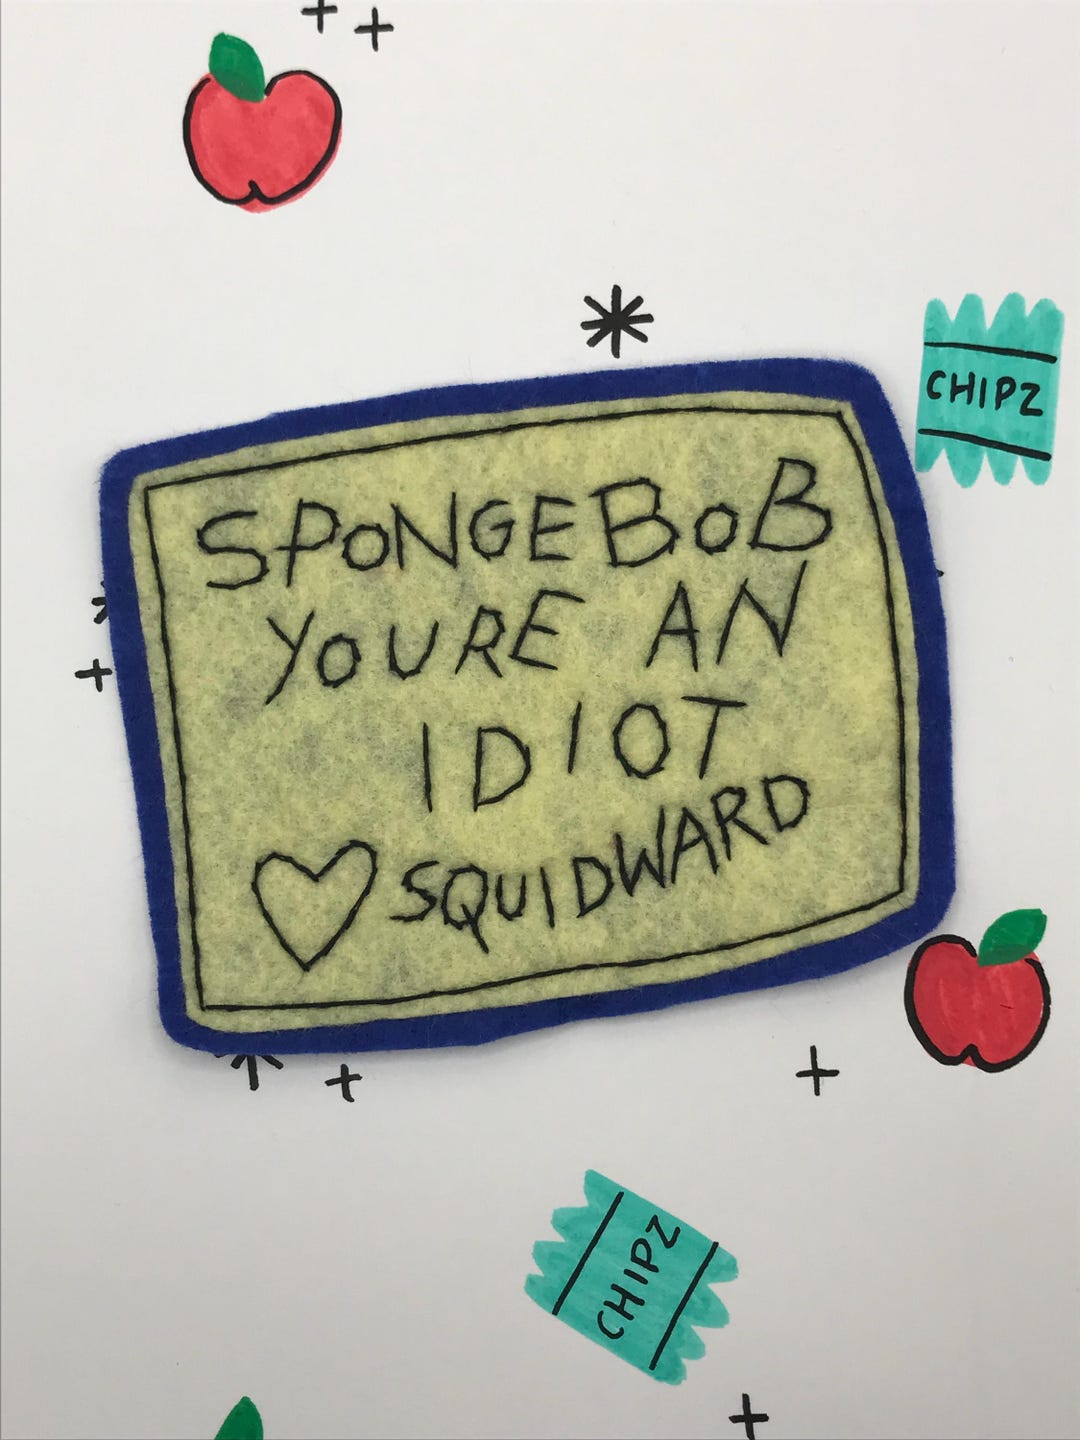 CHIPZ
SPONGEBOB
YOURE AN
IDIOT
♡ SQUIDWARD
CHIPZ